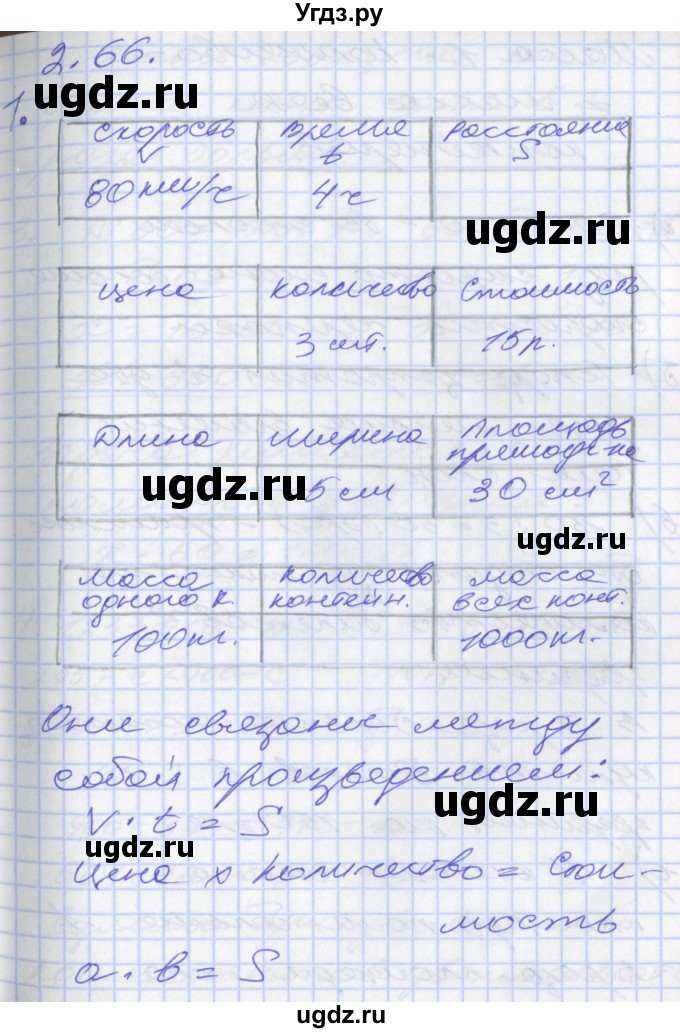 Угдз.ру
2.66.
ugdz.ru
1.
Скорость V | Время t | Расстояние S
80 км/ч | 4 ч
ugdz.ru
Цена | Количество | Стоимость
3 шт. | 15 р.
Длина | Ширина | Площадь прямоуг-ка
5 см | 30 см²
ugdz.ru
ugdz.ru
Масса одного к. | Количество контейн. | Масса всех конт.
100 кг. | 1000 кг.
Они связаны между
собой произведением:
ugdz.ru
V · t = S
ugdz.ru
Цена × количество = Стои-
мость
a · b = S
ugdz.ru